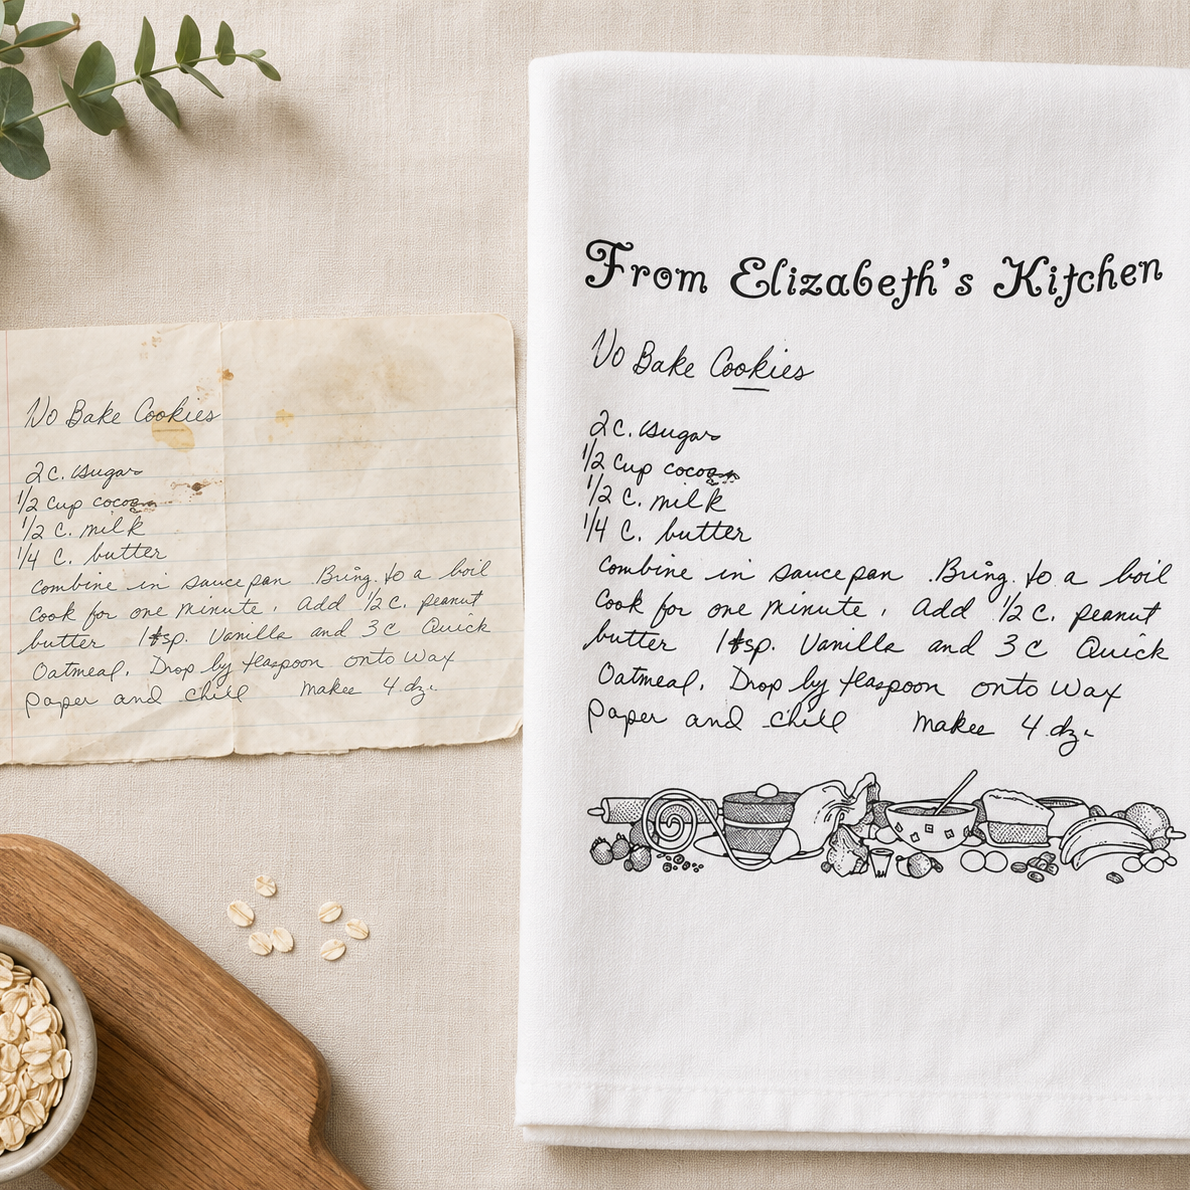 No Bake Cookies
2 C. sugar
1/2 cup cocoa
1/2 C. milk
1/4 C. butter
Combine in saucepan. Bring to a boil
Cook for one minute. Add 1/2 C. peanut
butter 1 tsp. Vanilla and 3 C Quick
Oatmeal. Drop by teaspoon onto wax
paper and chill makes 4 dz.
From Elizabeth's Kitchen
No Bake Cookies
2 C. sugar
1/2 cup cocoa
1/2 C. milk
1/4 C. butter
Combine in saucepan. Bring to a boil
Cook for one minute. Add 1/2 C. peanut
butter 1 tsp. Vanilla and 3 C Quick
Oatmeal. Drop by teaspoon onto wax
paper and chill makes 4 dz.